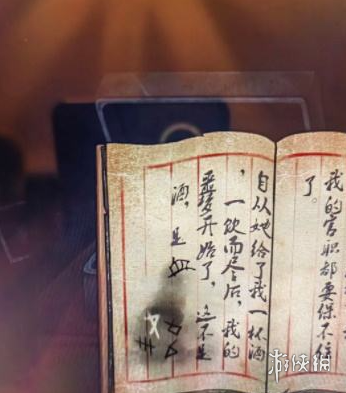 我的官职都要保不住
了。
自从她给了我一杯酒
，一饮而尽后，我的
噩梦开始了，这不是
酒，是血
游侠网